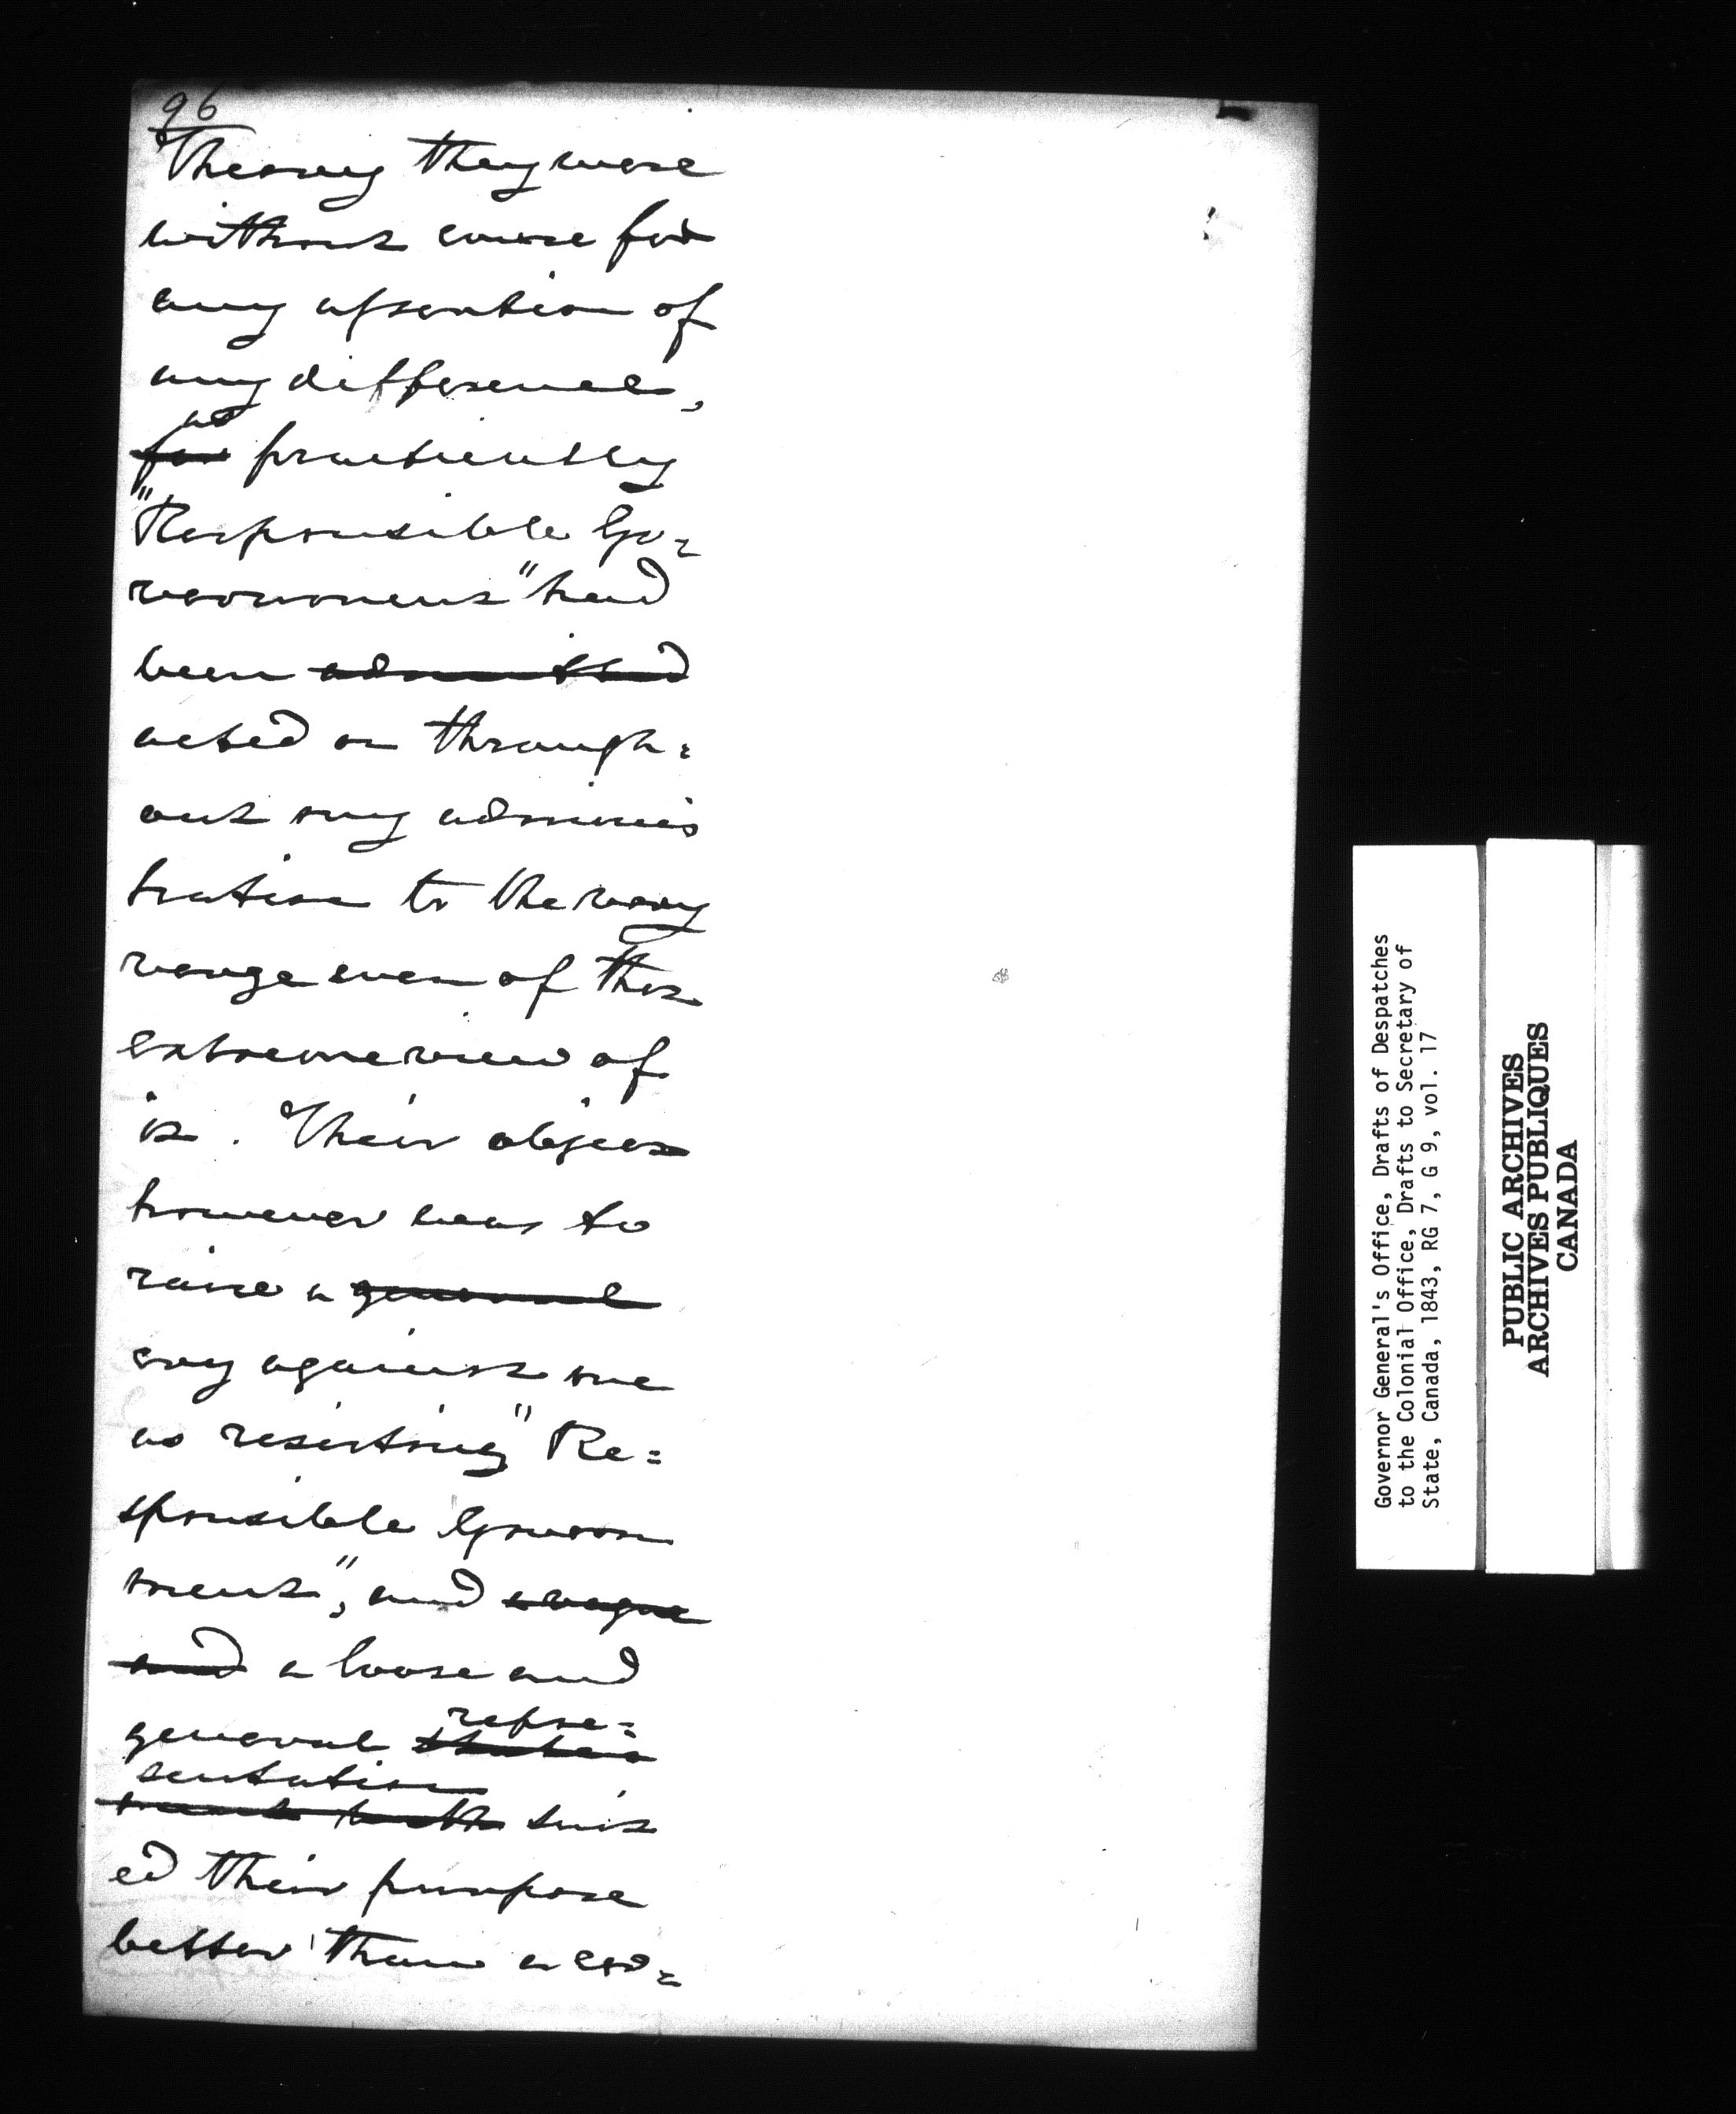 96
Theory they were
without cause for
any assertion of
any difference,
as
for practically
"Responsible Go=
vernment" had
been admitted
acted on through=
out my adminis
tration to the very
verge even of their
extreme view of
it. Their object
however was to
raise a general
cry against me
as resisting "Re=
sponsible Govern
ment", and a vague
and a loose and
general repre=
sentation
suit
ed their purpose
better than a
Governor General's Office, Drafts of Despatches
to the Colonial Office, Drafts to Secretary of
State, Canada, 1843, RG 7, G 9, vol. 17
PUBLIC ARCHIVES
ARCHIVES PUBLIQUES
CANADA